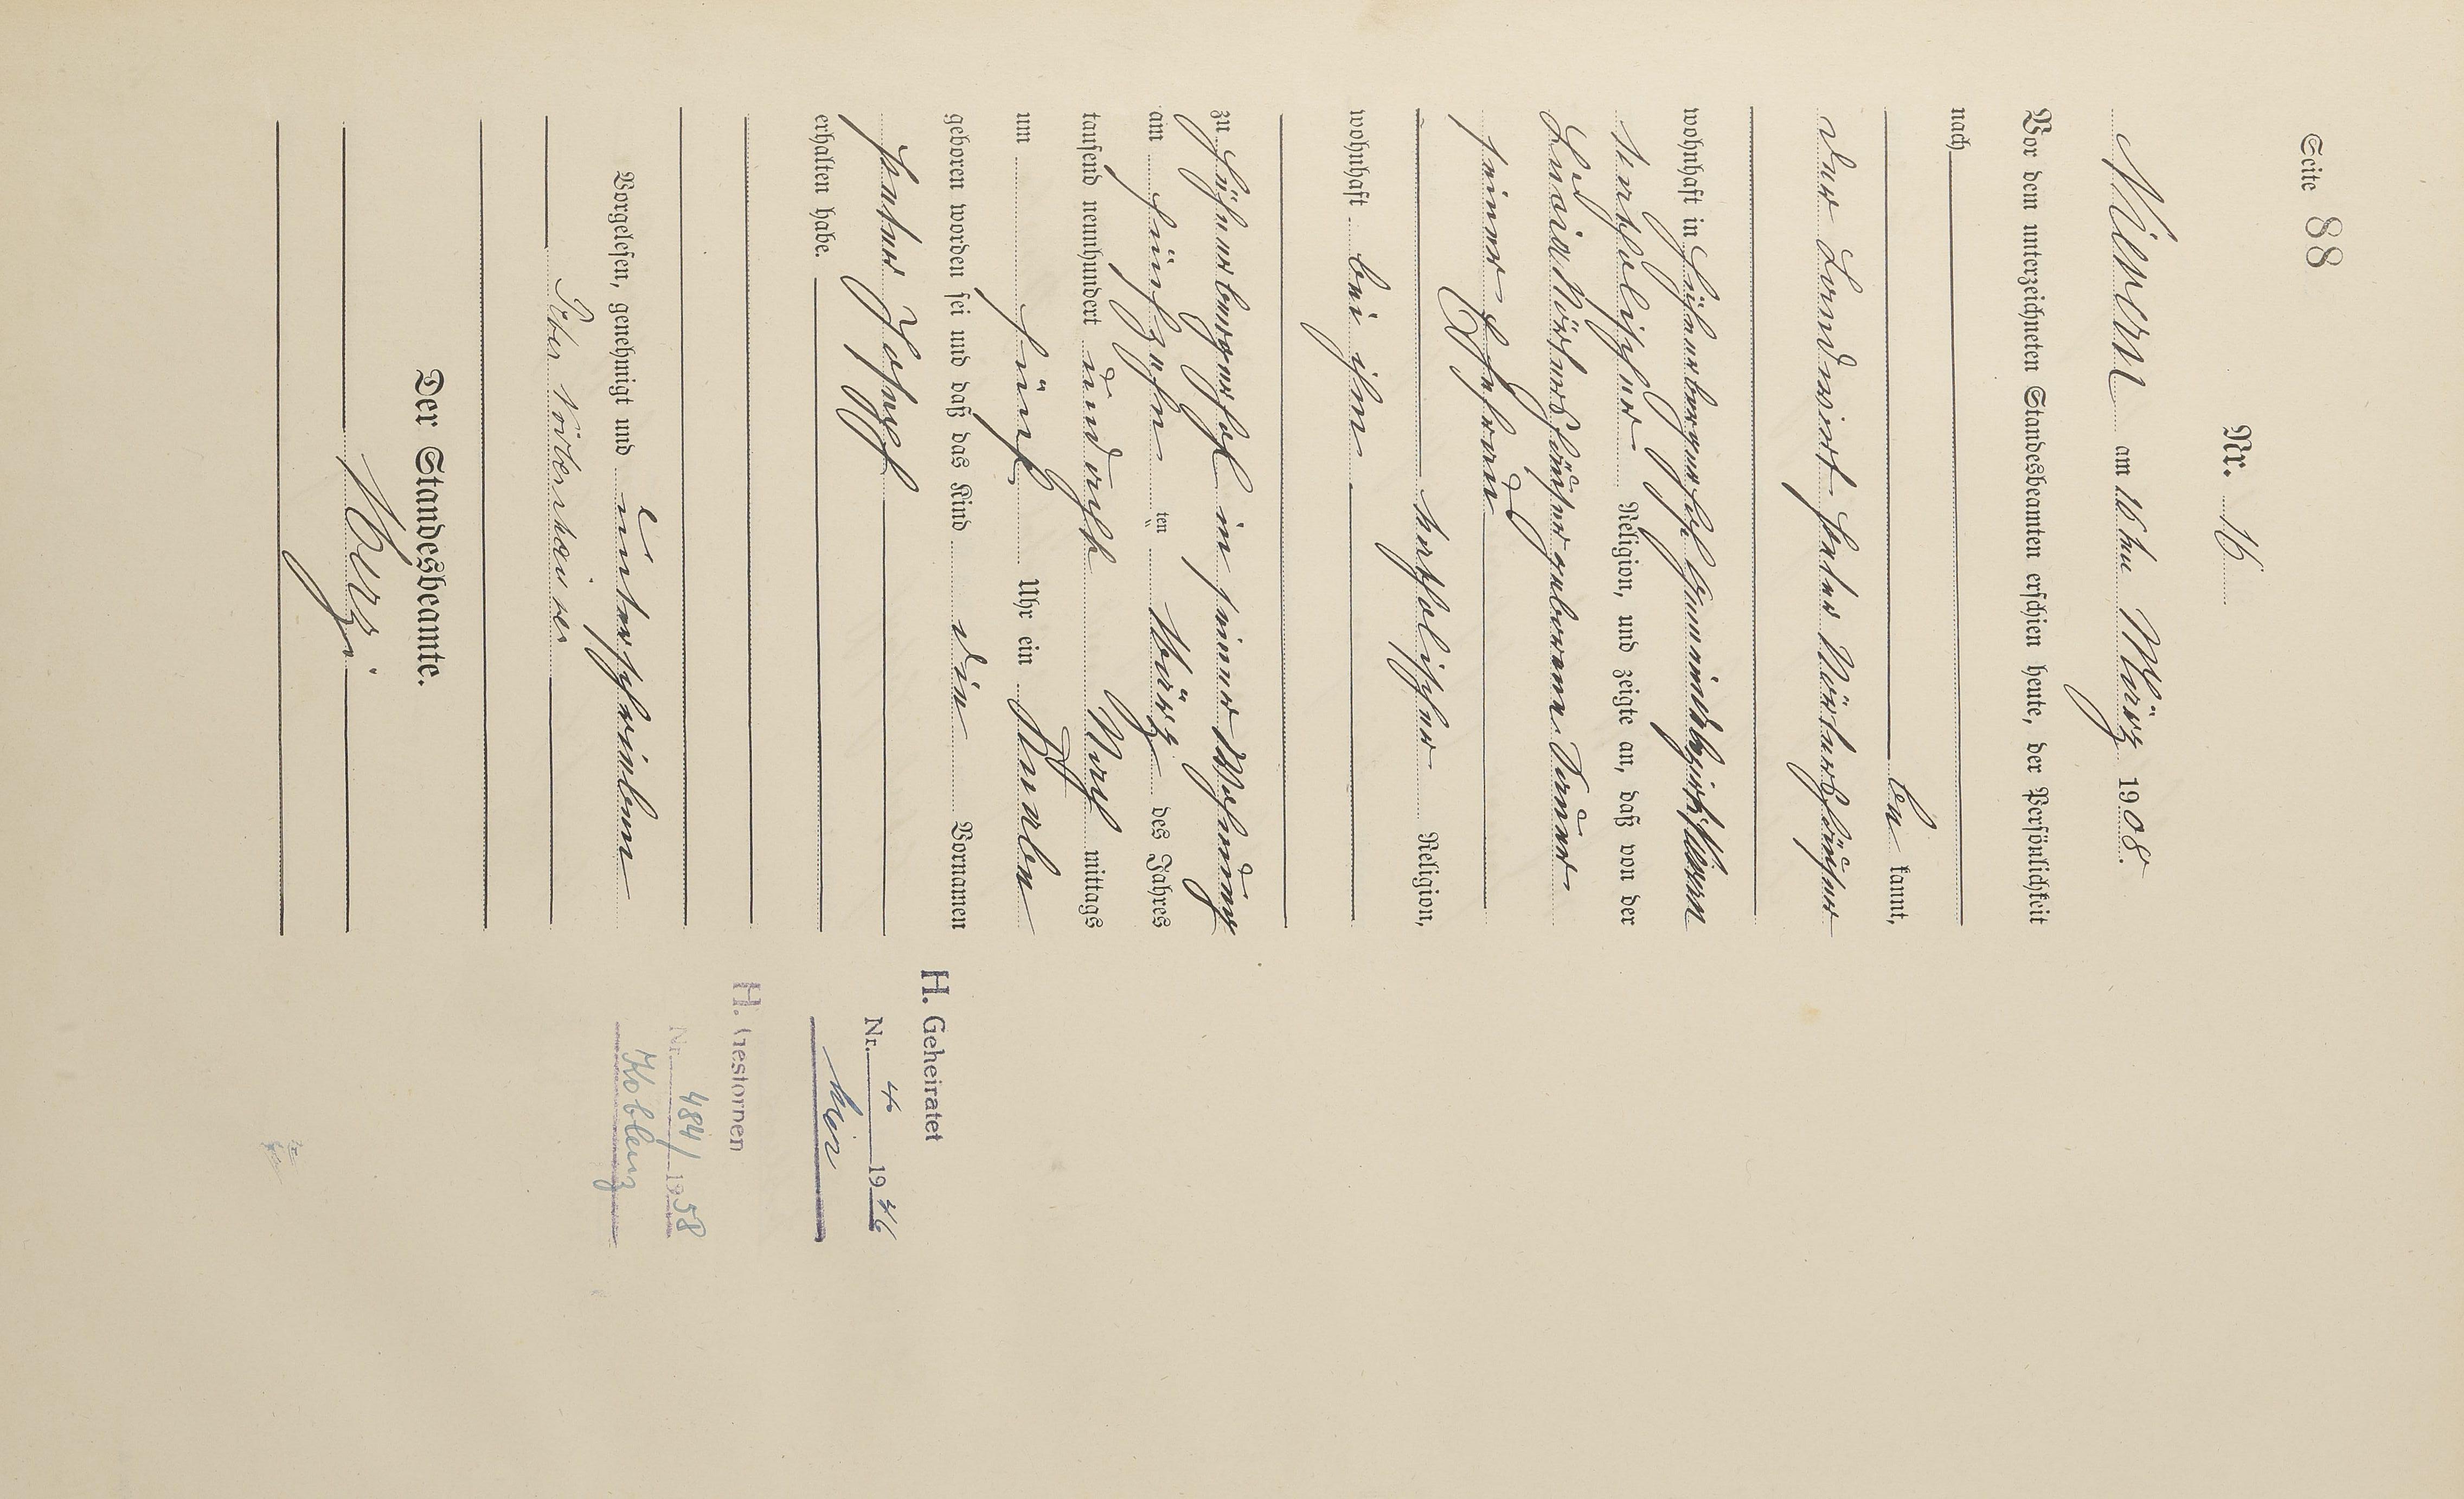 Seite 88
Nr. 16
Niveren am 16ten März 1908.
Vor dem unterzeichneten Standesbeamten erschien heute, der Persönlichkeit
nach
be kannt,
der Landwirt Peter Nörtershäuser
wohnhaft in Gemeindebezirk
katholischer Religion, und zeigte an, daß von der
Nörtershäuser geborene
seiner Ehefrau
katholischer Religion,
wohnhaft bei ihm
zu in seiner Wohnung
am fünfzehn ten März des Jahres
tausend neunhundert und acht Nach mittags
um fünf Uhr ein Knabe
geboren worden sei und daß das Kind die Vornamen
Peter Josef
erhalten habe.
Vorgelesen, genehmigt und unterschrieben
Peter Nörtershäuser
Der Standesbeamte.
H. Geheiratet
Nr. 4 1936
hier
H. Gestorben
Nr. 484/1958
Koblenz